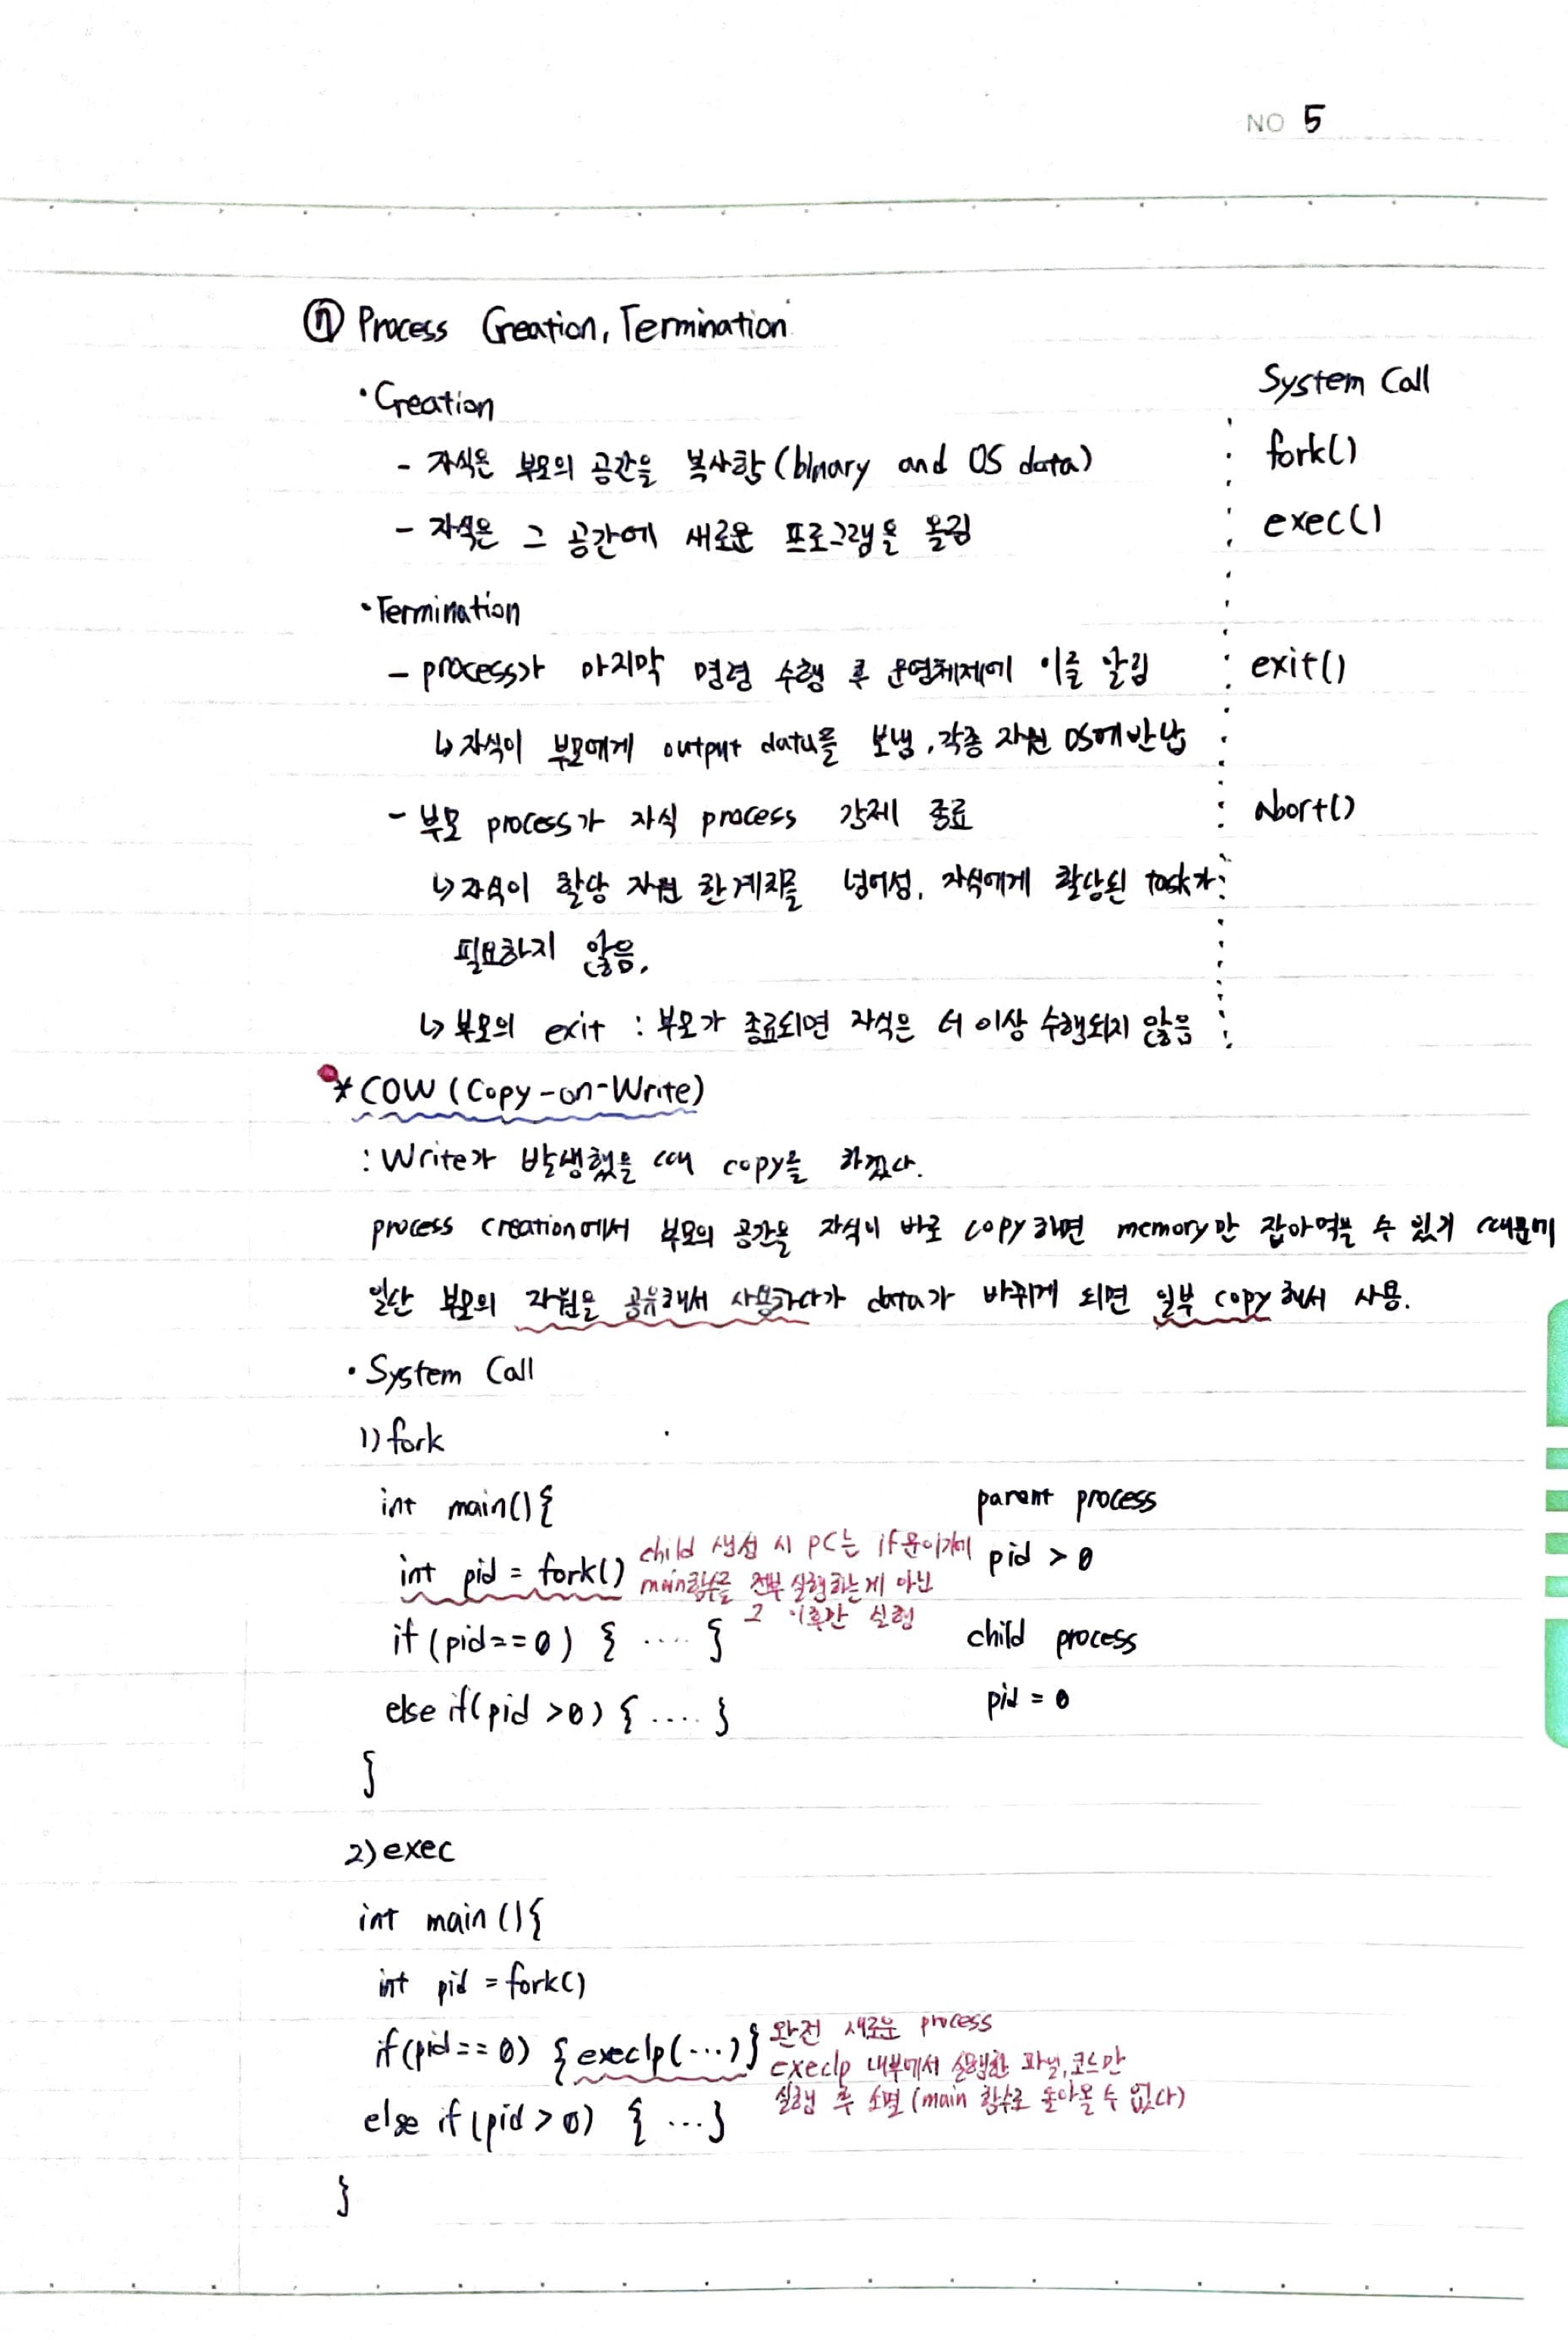 NO 5
⑪ Process Creation, Termination
System Call
• Creation
- 자식은 부모의 공간을 복사함 (binary and OS data) fork()
- 자식은 그 공간에 새로운 프로그램을 올림 exec()
• Termination
- process가 마지막 명령 수행 후 운영체제에 이를 알림 exit()
↳ 자식이 부모에게 output data를 보냄, 각종 자원 OS에 반납
- 부모 process가 자식 process 강제 종료 abort()
↳ 자식이 할당 자원 한계치를 넘어섬, 자식에게 할당된 task가
필요하지 않음.
↳ 부모의 exit : 부모가 종료되면 자식은 더 이상 수행되지 않음
* COW (Copy-on-Write)
: Write가 발생했을 때 copy를 하겠다.
process creation에서 부모의 공간을 자식이 바로 copy하면 memory만 잡아먹을 수 있기 때문에
일단 부모의 자원을 공유해서 사용하다가 data가 바뀌게 되면 일부 copy해서 사용.
• System Call
1) fork
int main(){ parent process
int pid = fork() child 생성 시 PC는 if문이기에 pid > 0
main함수를 전부 실행하는게 아닌
그 이후만 실행
if (pid==0) { .... } child process
else if(pid >0) { .... } pid = 0
}
2) exec
int main (){
int pid = fork()
if(pid == 0) { execlp(...)} 완전 새로운 process
execlp 내부에서 실행한 파일, 코드만
실행 후 소멸 (main 함수로 돌아올 수 없다)
else if (pid > 0) { ...}
}